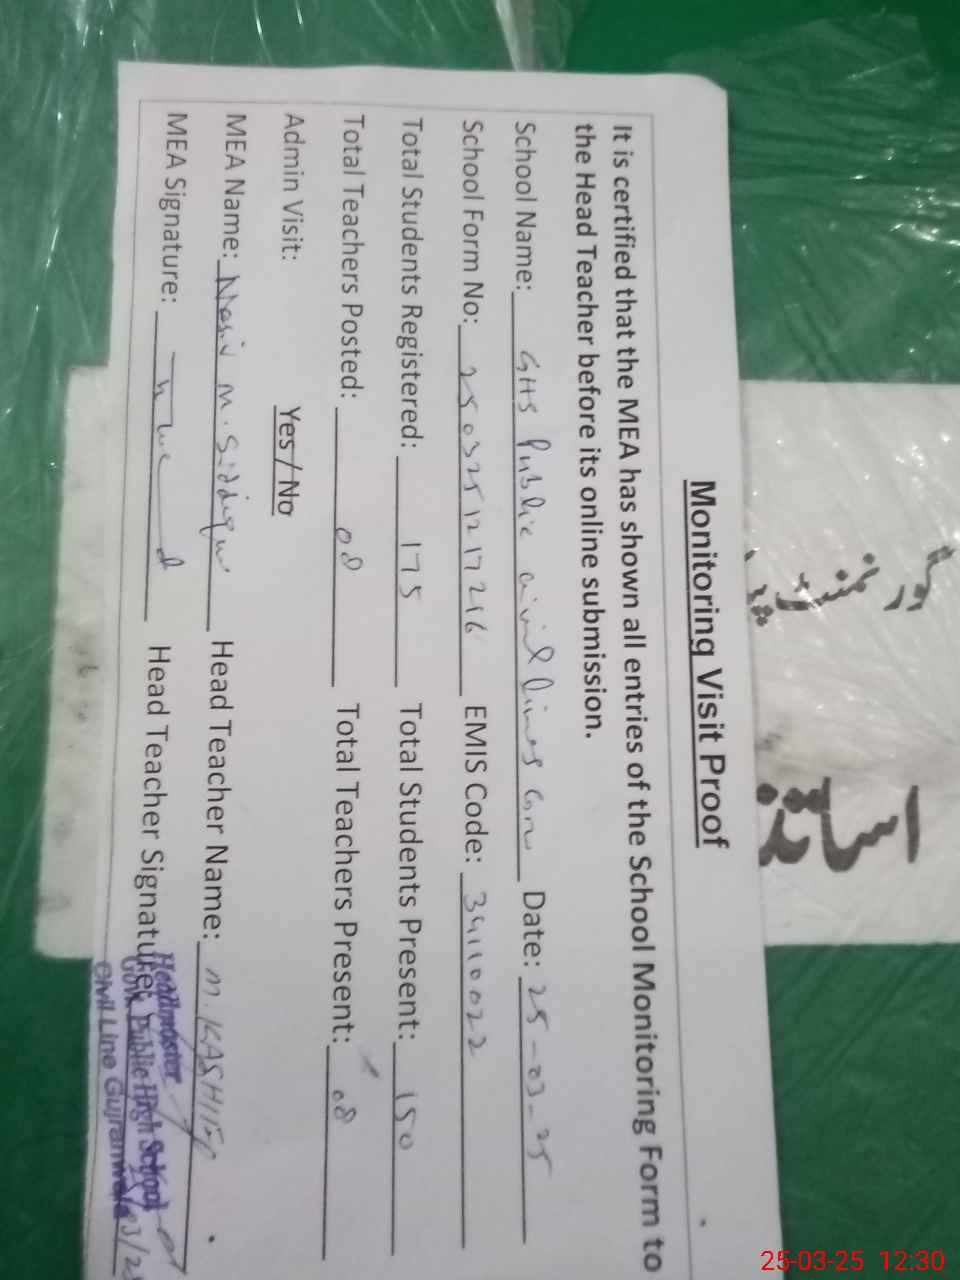 Monitoring Visit Proof
It is certified that the MEA has shown all entries of the School Monitoring Form to
the Head Teacher before its online submission.
School Name: GHS Public civil lines Date: 25-03-25
School Form No: EMIS Code: 34110022
Total Students Registered: 175 Total Students Present: 150
Total Teachers Posted: 08 Total Teachers Present: 08
Admin Visit: Yes / No
MEA Name: Nasir M. Siddique Head Teacher Name: M. KASHIF
MEA Signature: Head Teacher Signature:
Headmaster
Govt. Public High School
Civil Line Gujranwala
25-03-25 12:30